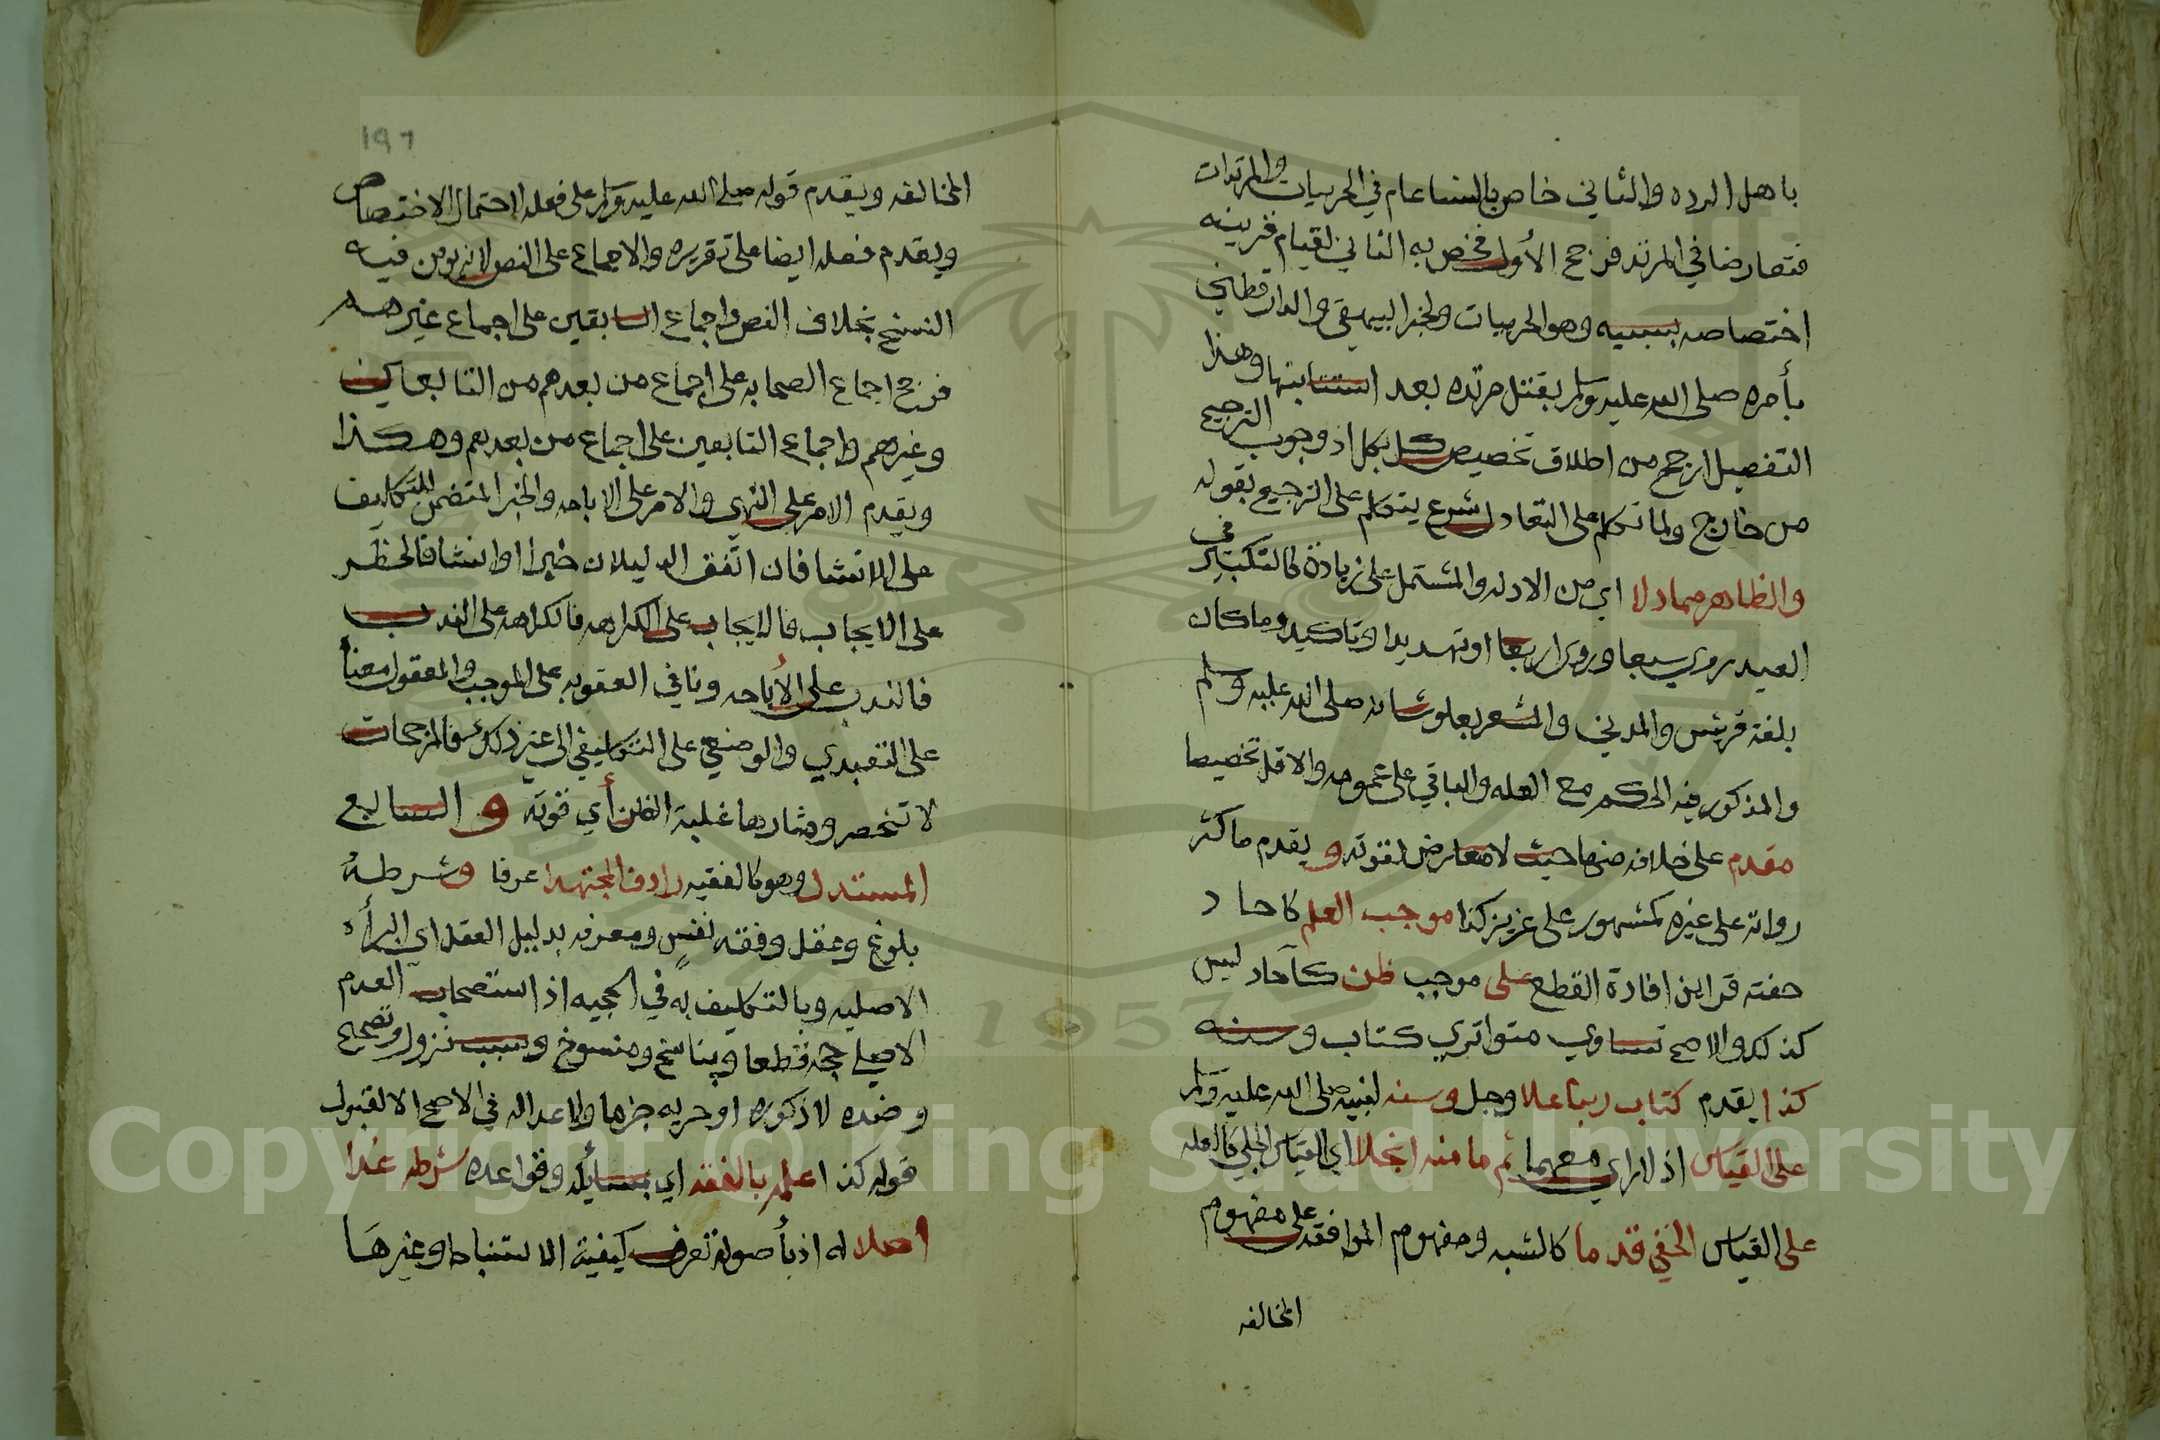 باهل الرده والثاني خاص بالنسا عام في الحربيات والمرتدات
فتعارضا في المرتد فرجح الأول فخص به الثاني لقيام قرينه
اختصاصه بسببه وهو الحربيات ولخبر البيهقي والدارقطني
بأمره صلى الله عليه وسلم بقتل مرتده بعد استتابتها وهذا
التفصيل ارجح من اطلاق تخصيص كل بكل اذ وجوب الترجيح
من خارج ولما تكلم على التعادل شرع يتكلم على الترجيح بقوله
والظاهر مما دلا اي من الادله والمشتمل على زيادة كالتكبير في
العيد روي سبعا وروي اربعا او تهديدا وتاكيد وما كان
بلغة قريش والمدني والمشعر بعلو شانه صلى الله عليه وسلم
والمذكور فيه الحكم مع العله والباقي على عمومه والاقل تخصيصا
مقدم على خلافه منها حيث لا معارض لقوته و يقدم ما كثر
رواته على غيره كمشهور على عزيز كذا موجب العلم كاحاد
حفته قراين افادة القطع على موجب ظن كآحاد ليس
كذلك والاصح تساوي متواتري كتاب وسنه
كذا يقدم كتاب ربنا علا وجل وسنه لنبيه صلى الله عليه وسلم
على القياس اذ لا راي معهما ثم ما منه انجلا اي القياس الجلي كالعله
على القياس الخفي قدما كالشبه ومفهوم الموافقه على مفهوم
المخالفه
١٩٦
المخالفه ويقدم قوله صلى الله عليه وسلم على فعله لاحتمال الاختصاص
ويقدم فعله ايضا على تقريره والاجماع على النص لانه يومن فيه
النسخ بخلاف النص واجماع السابقين على اجماع غيرهم
فرجح اجماع الصحابه على اجماع من بعدهم من التابعين
وغيرهم واجماع التابعين على اجماع من بعدهم وهكذا
ويقدم الامر على النهي والامر على الاباحه والخبر المتضمن للتكليف
على الانشا فان اتفق الدليلان خبرا او انشا فالحظر
على الايجاب فالايجاب على الكراهه فالكراهه على الندب
فالندب على الأباحه ونافي العقوبه على الموجب والمعقول معنأ
على التعبدي والوضعي على التكليفي الى غير ذلك فالمرجحات
لا تنحصر ومثارها غلبة الظن أي قوته و السابع
المستدل وهو كالفقيه رادف المجتهدا عرفا وشرطه
بلوغ وعقل وفقه نفس ومعرفه بدليل العقل اي البرأه
الاصليه وبالتكليف به في الحجيه اذ استصحاب العدم
الاصلي حجه قطعا وبناسخ ومنسوخ وسبب نزول وتصحيح
وضده لا ذكوره او حريه جزما ولا عداله في الاصح الا لقبول
قوله كذا علمه بالفقه اي بمسايله وقواعده شرطه غدا
اصلا له اذ بأصوله تعرف كيفية الاستنباط وغيرها